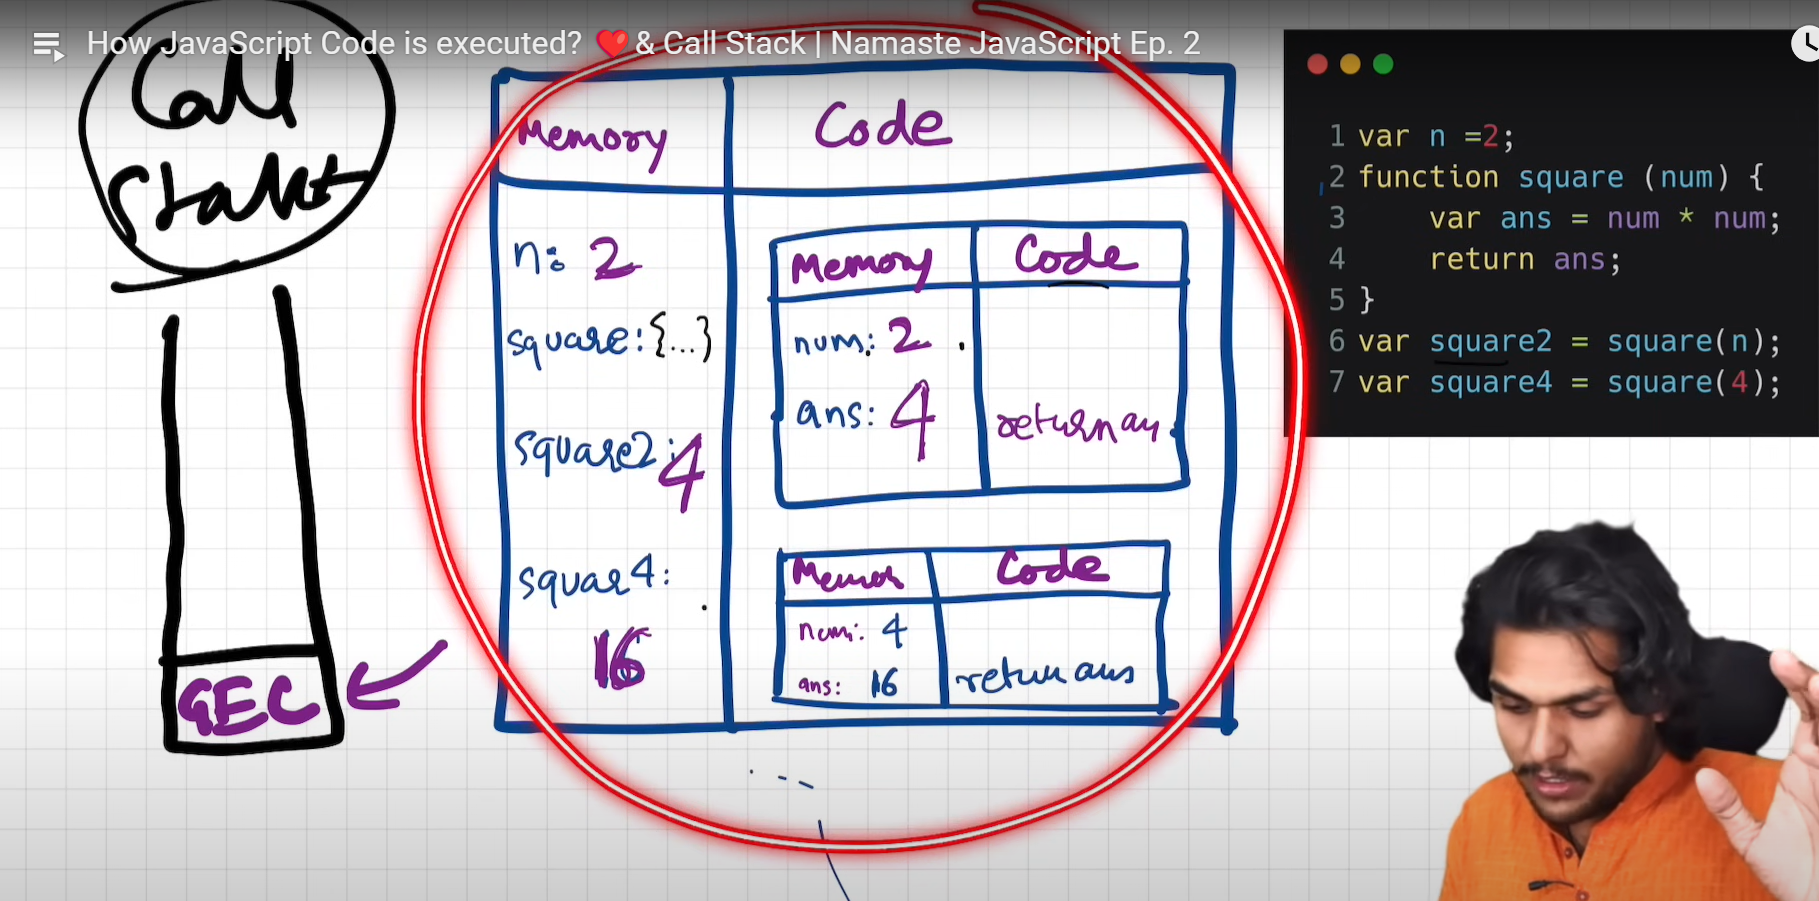 How JavaScript Code is executed? ❤️ & Call Stack | Namaste JavaScript Ep. 2
Call
Stack
GEC
Memory
Code
n: 2
square: {...}
square2: 4
squar4:
16
Memory
Code
num: 2
ans: 4
return an
Code
num: 4
ans: 16
return ans
1 var n =2;
2 function square (num) {
3 var ans = num * num;
4 return ans;
5 }
6 var square2 = square(n);
7 var square4 = square(4);